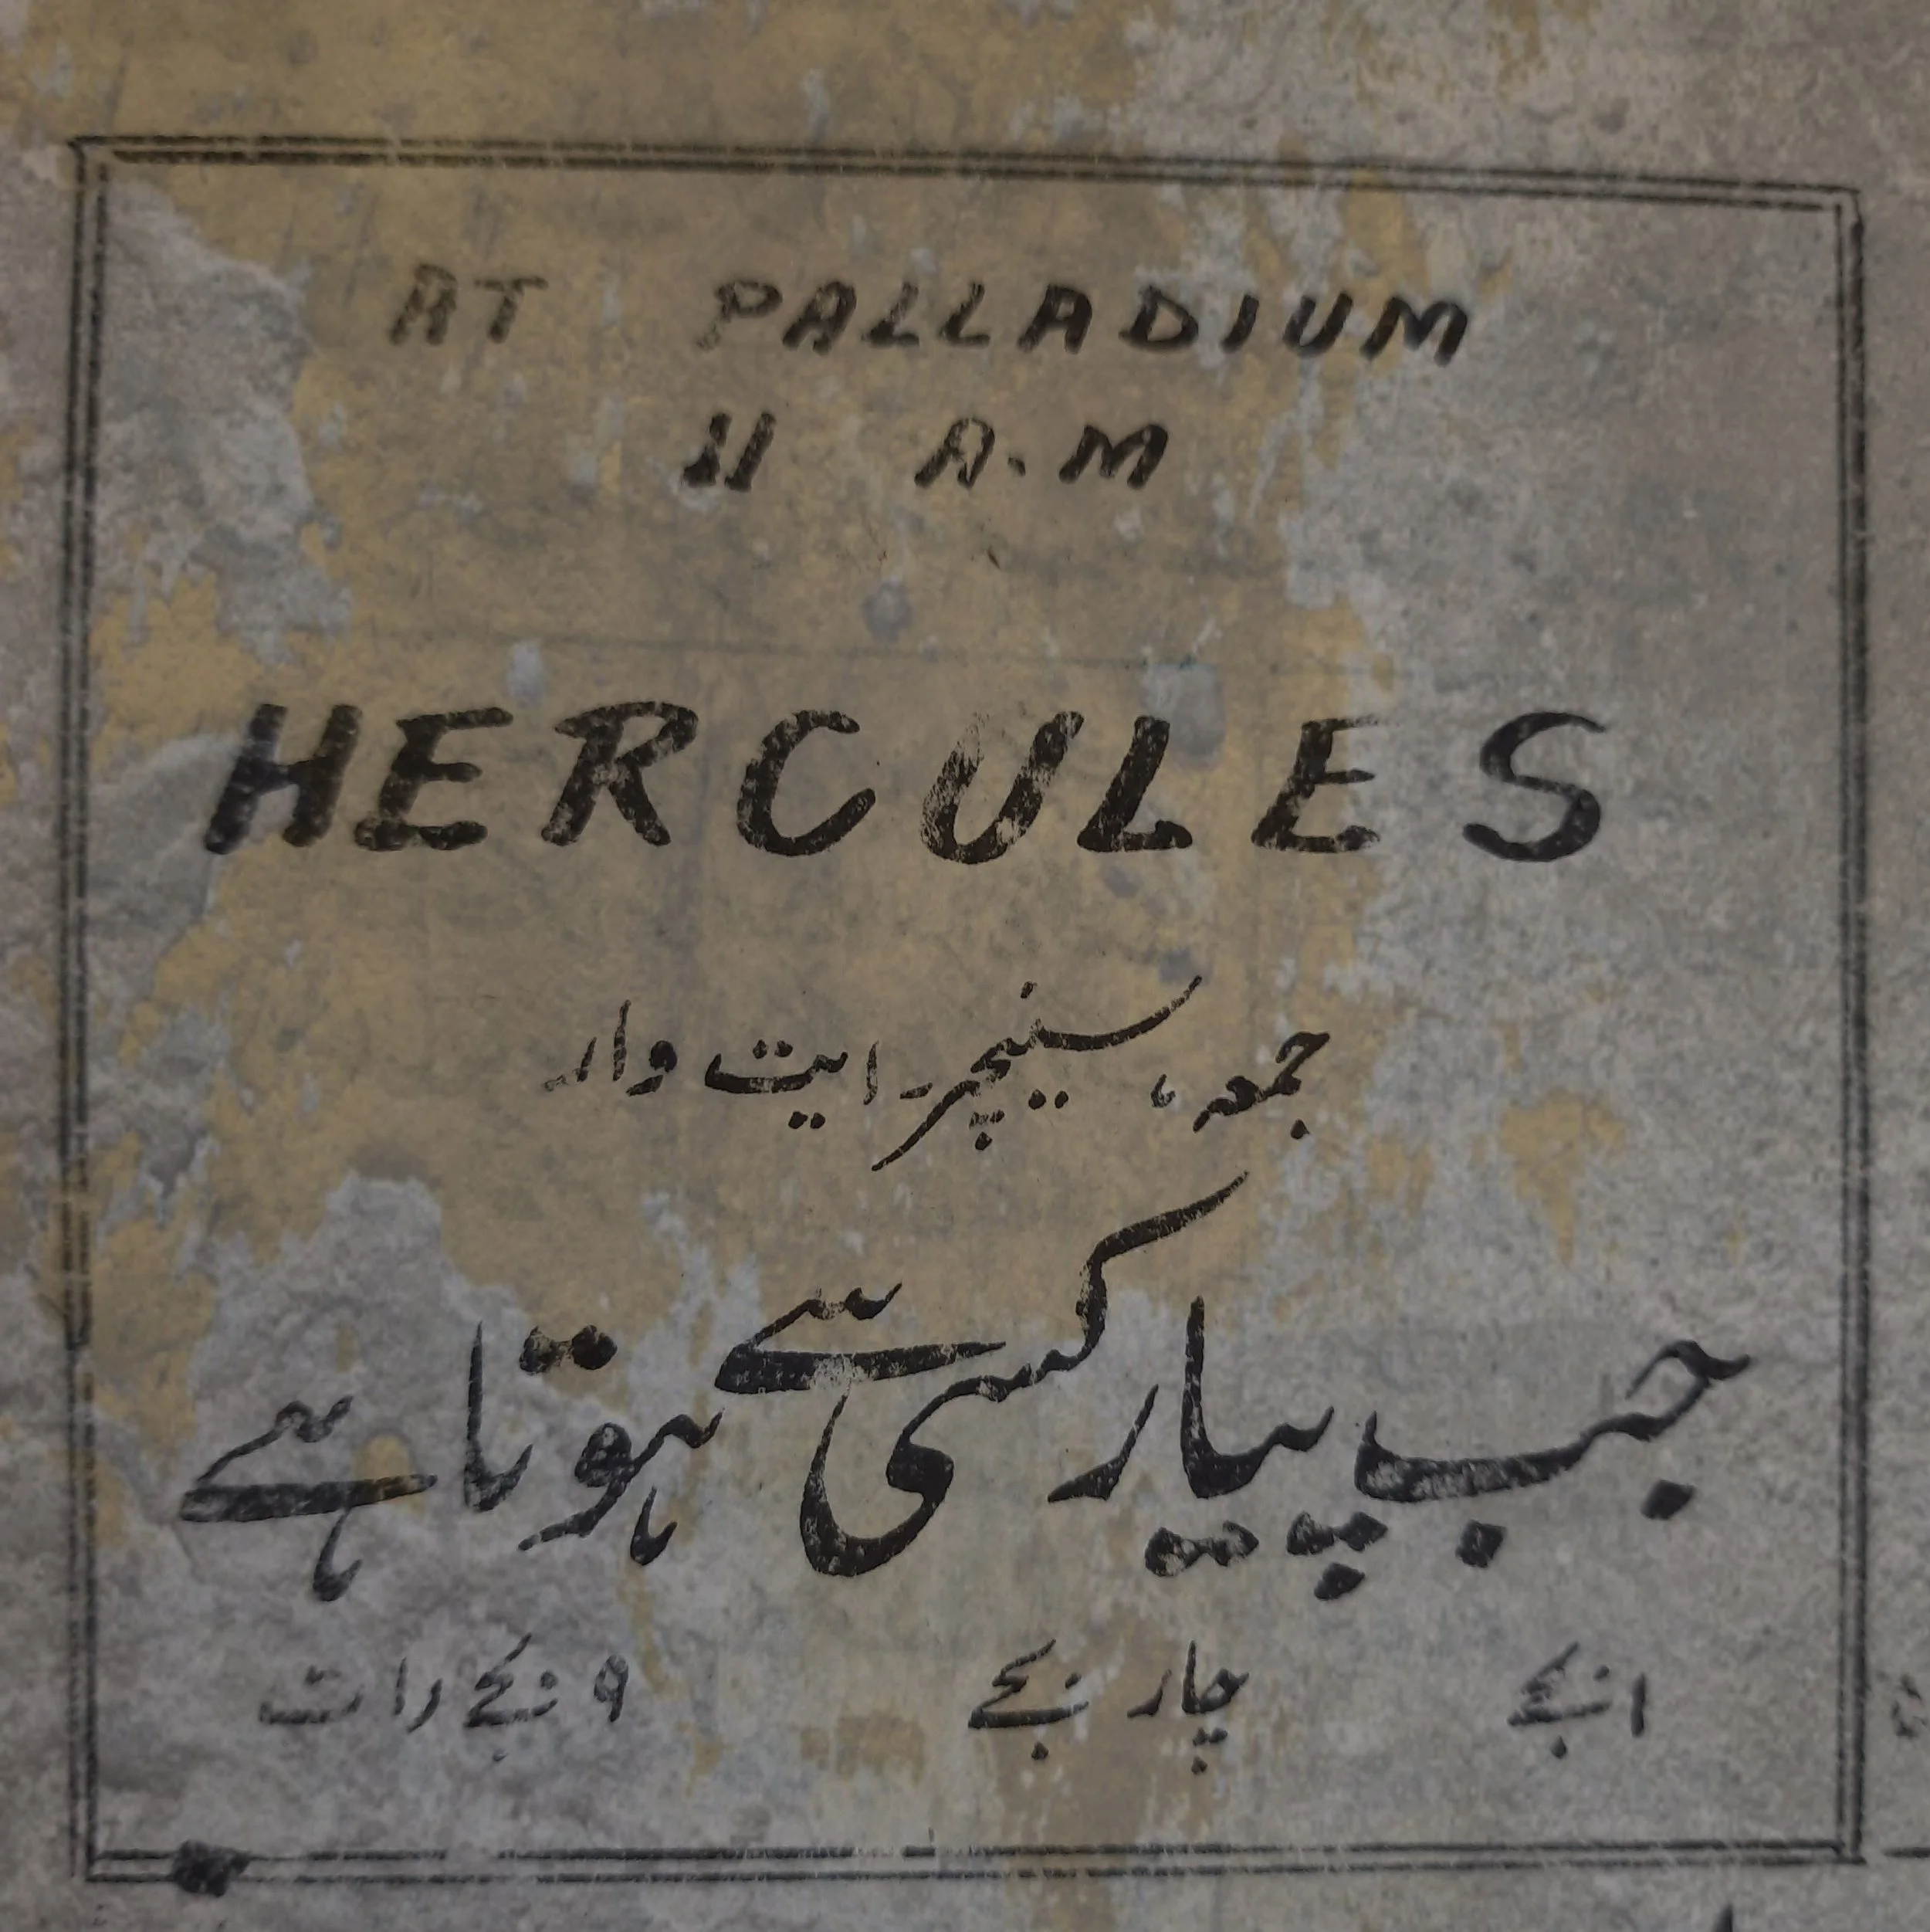 AT PALLADIUM
11 A.M
HERCULES
جمعہ، سینچر۔ ایت وار
جب پیار کسی سے ہوتا ہے
ا بجے چار بجے ۹ بجے رات